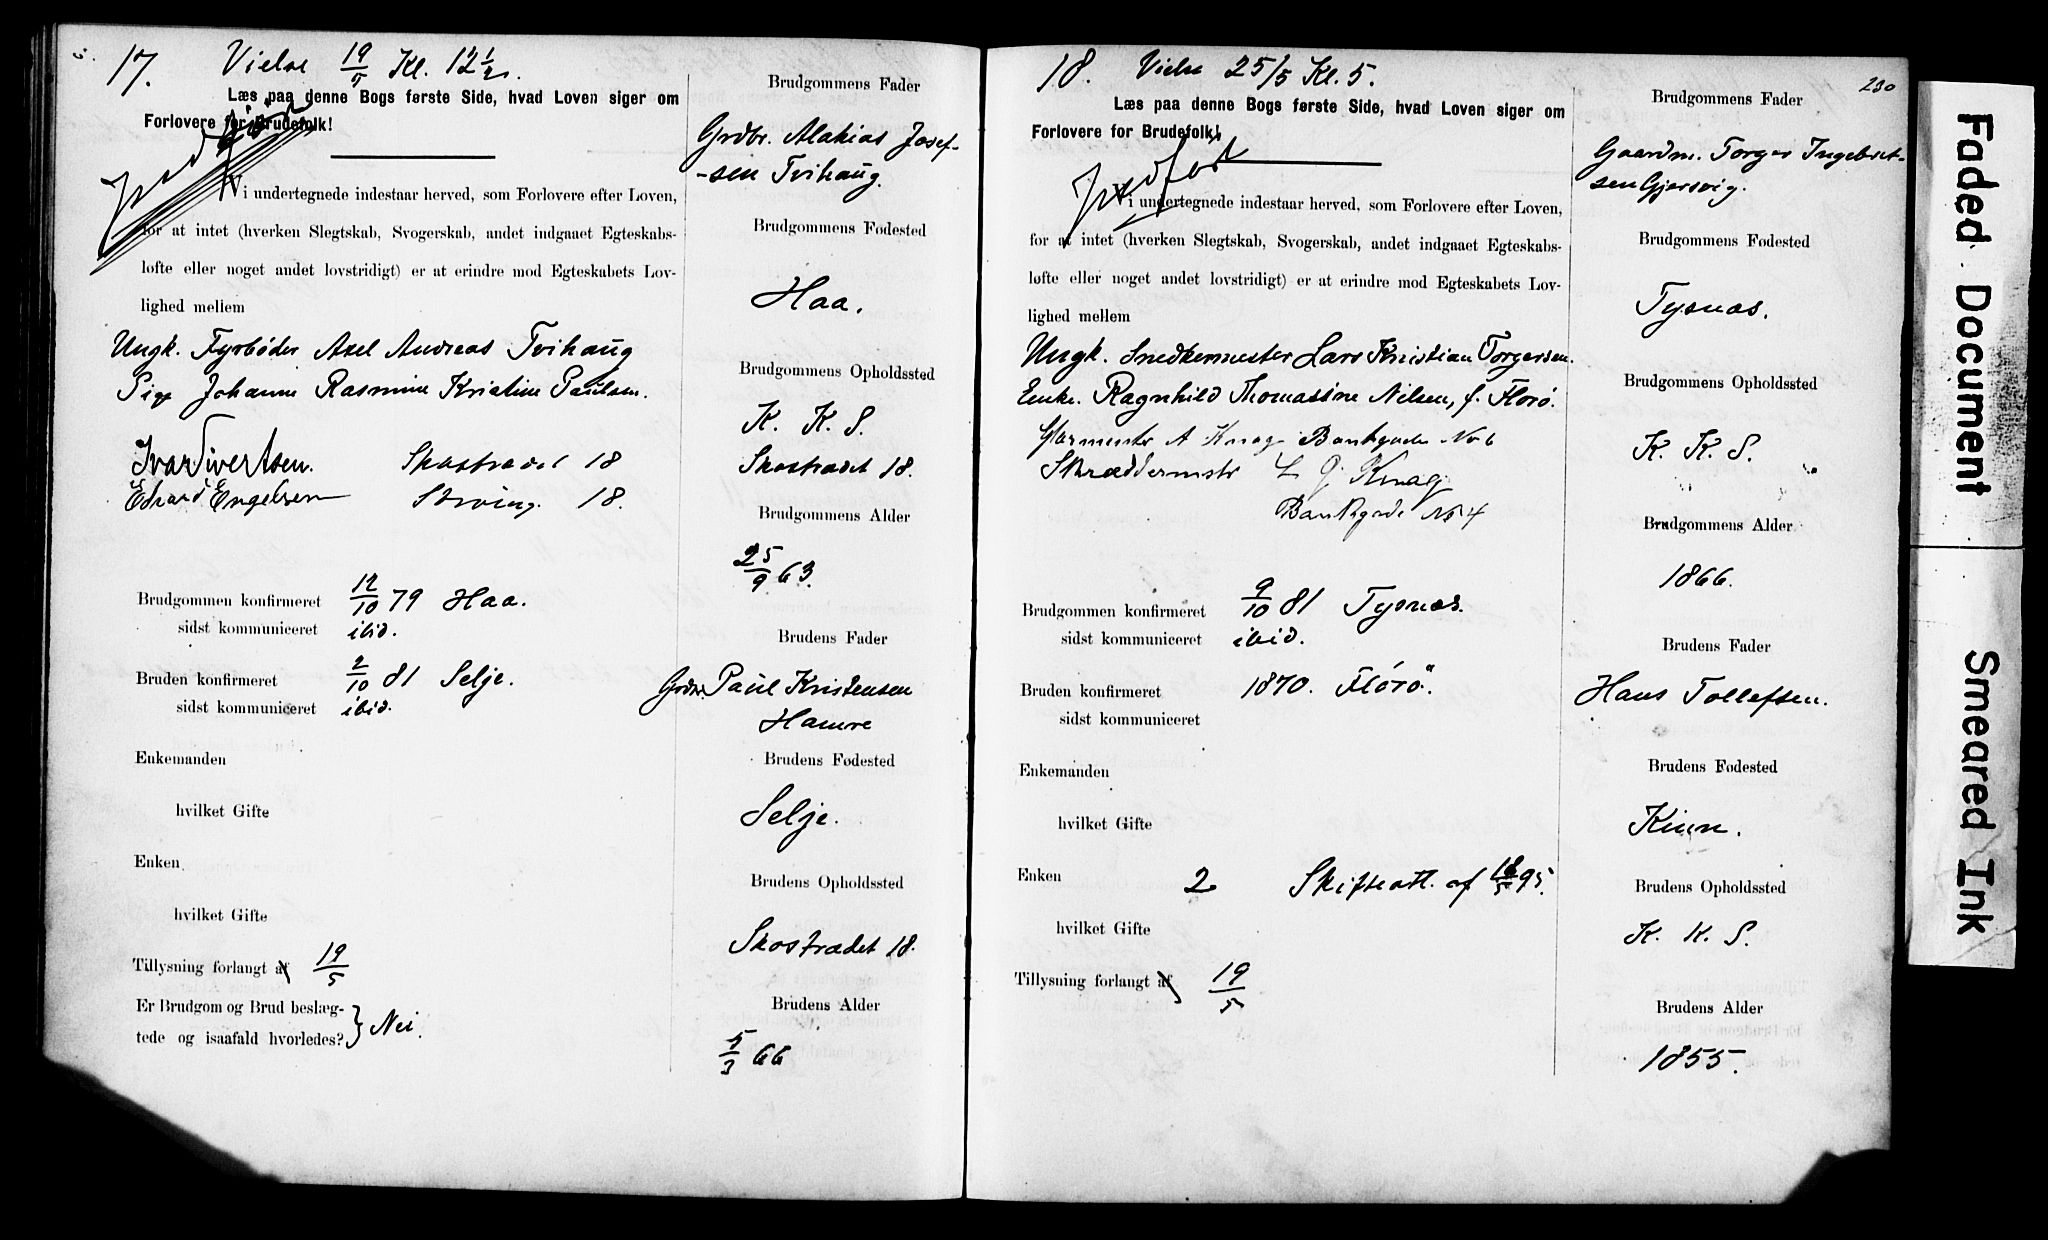 17. Vielse 19/5 Kl. 12 1/2.
Læs paa denne Bogs første Side, hvad Loven siger om
Forlovere for Brudefolk!
Indført
Vi undertegnede indestaar herved, som Forlovere efter Loven,
for at intet (hverken Slegtskab, Svogerskab, andet indgaaet Egteskabs-
løfte eller noget andet lovstridigt) er at erindre mod Egteskabets Lov-
lighed mellem
Ungk. Fyrbøder Axel Andreas Tvihaug
Pige Johanne Rasmine Kristine Paulsen.
Ivar Sivertsen. Skostrædet 18
Edvard Engelsen 18.
Brudgommen konfirmeret 12/10 79 Haa.
sidst kommuniceret ibid.
Bruden konfirmeret 2/10 81 Selje.
sidst kommuniceret ibid.
Enkemanden
hvilket Gifte
Enken
hvilket Gifte
Tillysning forlangt af 19/5
Er Brudgom og Brud beslæg-
tede og isaafald hvorledes? } Nei.
Brudgommens Fader
Grdbr. Malakias Josef-
-sen Tvihaug.
Brudgommens Fødested
Haa.
Brudgommens Opholdssted
K. K. S.
Skostrædet 18.
Brudgommens Alder
25/9 63.
Brudens Fader
Grdbr. Paul Kristensen
Hamre
Brudens Fødested
Selje.
Brudens Opholdssted
Skostrædet 18.
Brudens Alder
5/3 66
18. Vielse 25/5 Kl. 5.
230
Læs paa denne Bogs første Side, hvad Loven siger om
Forlovere for Brudefolk!
Indført
Vi undertegnede indestaar herved, som Forlovere efter Loven,
for at intet (hverken Slegtskab, Svogerskab, andet indgaaet Egteskabs-
løfte eller noget andet lovstridigt) er at erindre mod Egteskabets Lov-
lighed mellem
Ungk. Snedkermester Lars Kristian Torgersen.
Enke. Ragnhild Thomassine Nilsen, f. Florø.
Glarmester A Knag Bankgaden No 6
Skræddermstr L J Knag
Bankgade No 4
Brudgommen konfirmeret 9/10 81 Tysnæs.
sidst kommuniceret ibid.
Bruden konfirmeret 1870. Florø.
sidst kommuniceret
Enkemanden
hvilket Gifte
Enken 2 Skifteatt. af 18/5 95.
hvilket Gifte
Tillysning forlangt af 19/5
Brudgommens Fader
Gaardm. Torger Ingebret-
sen Gjersvig.
Brudgommens Fødested
Tysnæs.
Brudgommens Opholdssted
K. K. S.
Brudgommens Alder
1866.
Brudens Fader
Hans Tollefsen.
Brudens Fødested
Kinn.
Brudens Opholdssted
K. K. S.
Brudens Alder
1855.
Faded Document
Smeared Ink